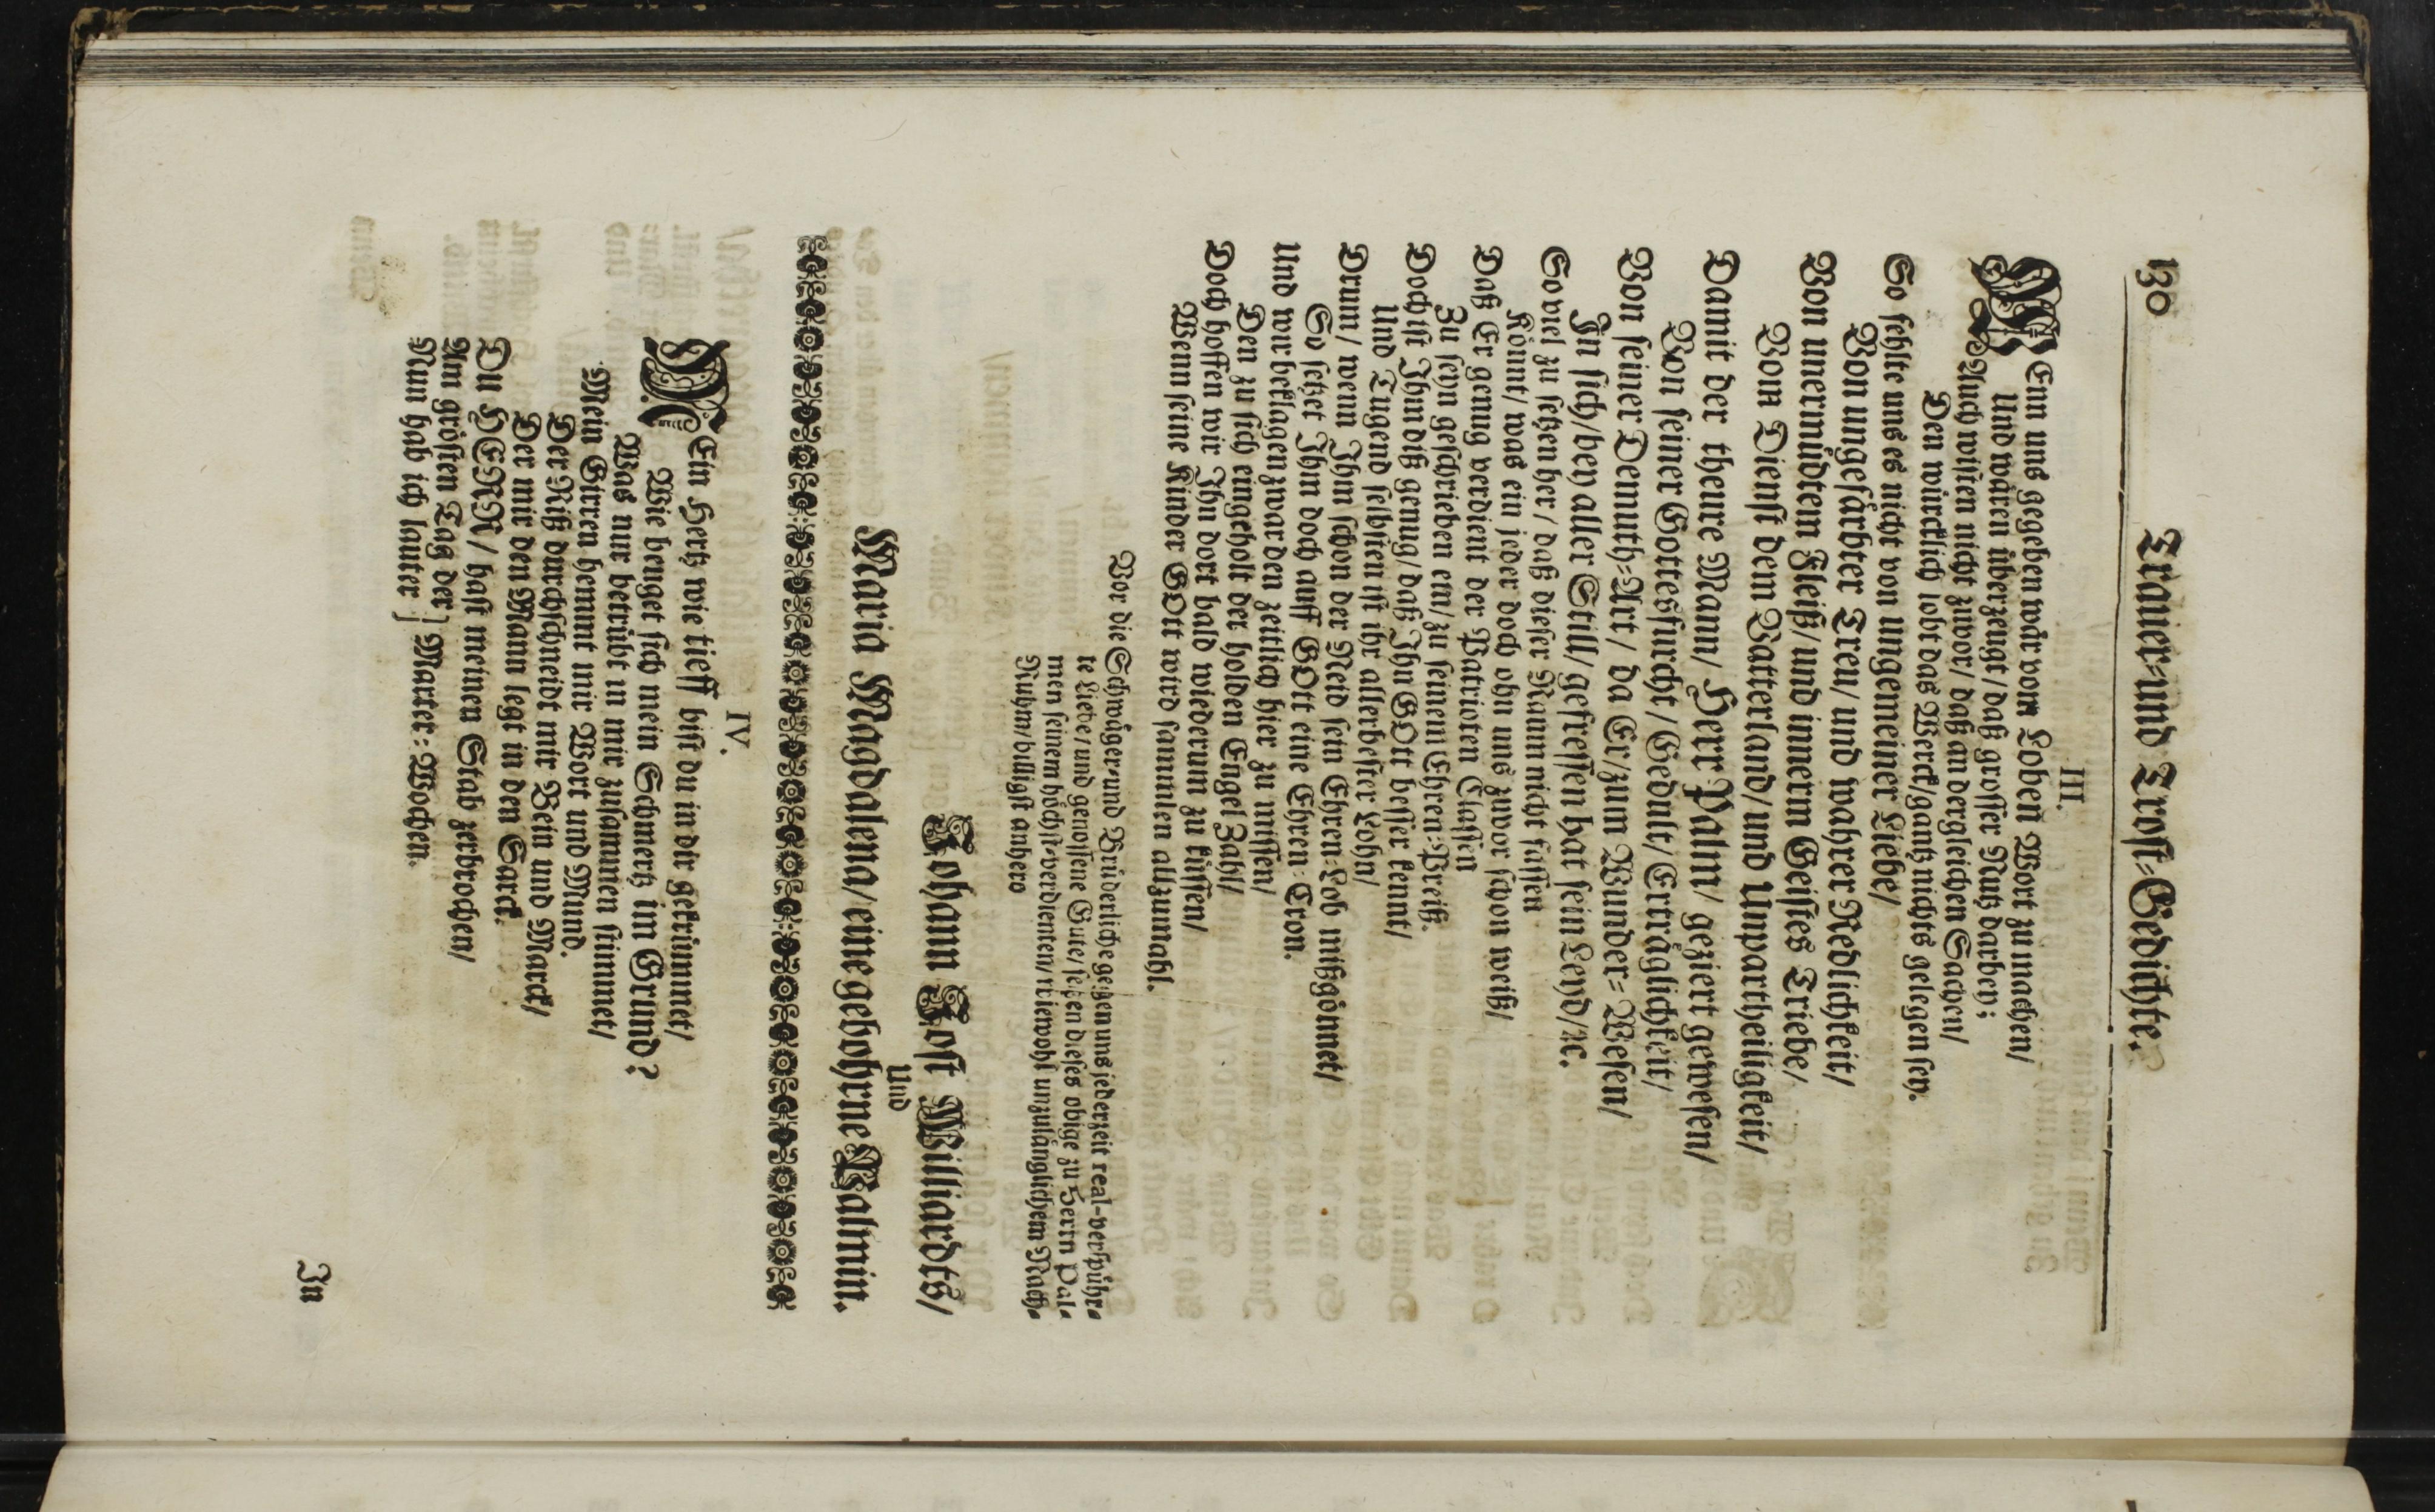 130 Traner-und Trost-Gedichte.
III.
WEnn uns gegeben wär vom Loben Wort zu machen/
Und wären überzeugt/ daß grosser Nutz darbey;
Auch wüsten nicht zuvor/ daß an dergleichen Sachen/
Den würcklich lobt das Werck/ gantz nichts gelegen sey.
So fehlte uns es nicht von ungemeiner Liebe/
Von ungefärbter Treu/ und wahrer Redlichkeit/
Von unermüdtem Fleiß/ und innerm Geistes Triebe/
Von Dienst dem Vatterland/ und Unpartheiligkeit/
Damit der theure Mann/ Herr Palm/ geziert gewesen/
Von seiner Gottesfurcht/ Gedult/ Erträglichkeit/
Von seiner Demuth-Art/ da Er/ zum Wunder-Wesen/
In sich/ bey aller Still/ gefressen hat sein Leyd/ ꝛc.
So viel zu setzen her/ daß dieser Raum nicht fassen
Könnt/ was ein jeder doch ohn uns zuvor schon weiß/
Daß Er genug verdient der Patrioten Classen
Zu seyn geschrieben ein/ zu seinem Ehren-Preiß.
Doch ist Ihm diß genug/ daß Ihn GOtt besser kennt/
Und Tugend selbsten ist ihr allerbester Lohn/
Drum/ wenn Ihm schon der Neid sein Ehren-Lob mißgönnet/
So setzet Ihm doch auff GOtt eine Ehren-Cron.
Und wir beklagen zwar den zeitlich hier zu missen/
Den zu sich eingeholt der holden Engel Zahl/
Doch hoffen wir Ihn dort bald wiederum zu küssen/
Wenn seine Kinder GOtt wird sammlen allzumahl.
Vor die Schwäger-und Brüderliche gegen uns jederzeit real-verspühr-
te Liebe/ und genossene Gute/ setzen dieses obige zu Herrn Pal-
men seinem höchst-verdienten/ wiewohl unzulänglichem Nach-
Ruhm/ billigst anhero
Johann Jost Williardts/
Und
Maria Magdalena/ eine gebohrne Palmin.
IV.
MEin Hertz wie tieff bist du in dir gekrümmet/
Wie beuget sich mein Schmertz im Grund?
Was nur betrübt in mir zusammen stimmet/
Mein Girren hemmt mir Wort und Mund.
Der Riß durchschneidt mir Bein und Marck/
Der mir den Mann legt in den Sarck.
Du HERR/ hast meinen Stab zerbrochen/
Am grösten Tag der] Marter-Wochen.
Nun hab ich lauter ]
In